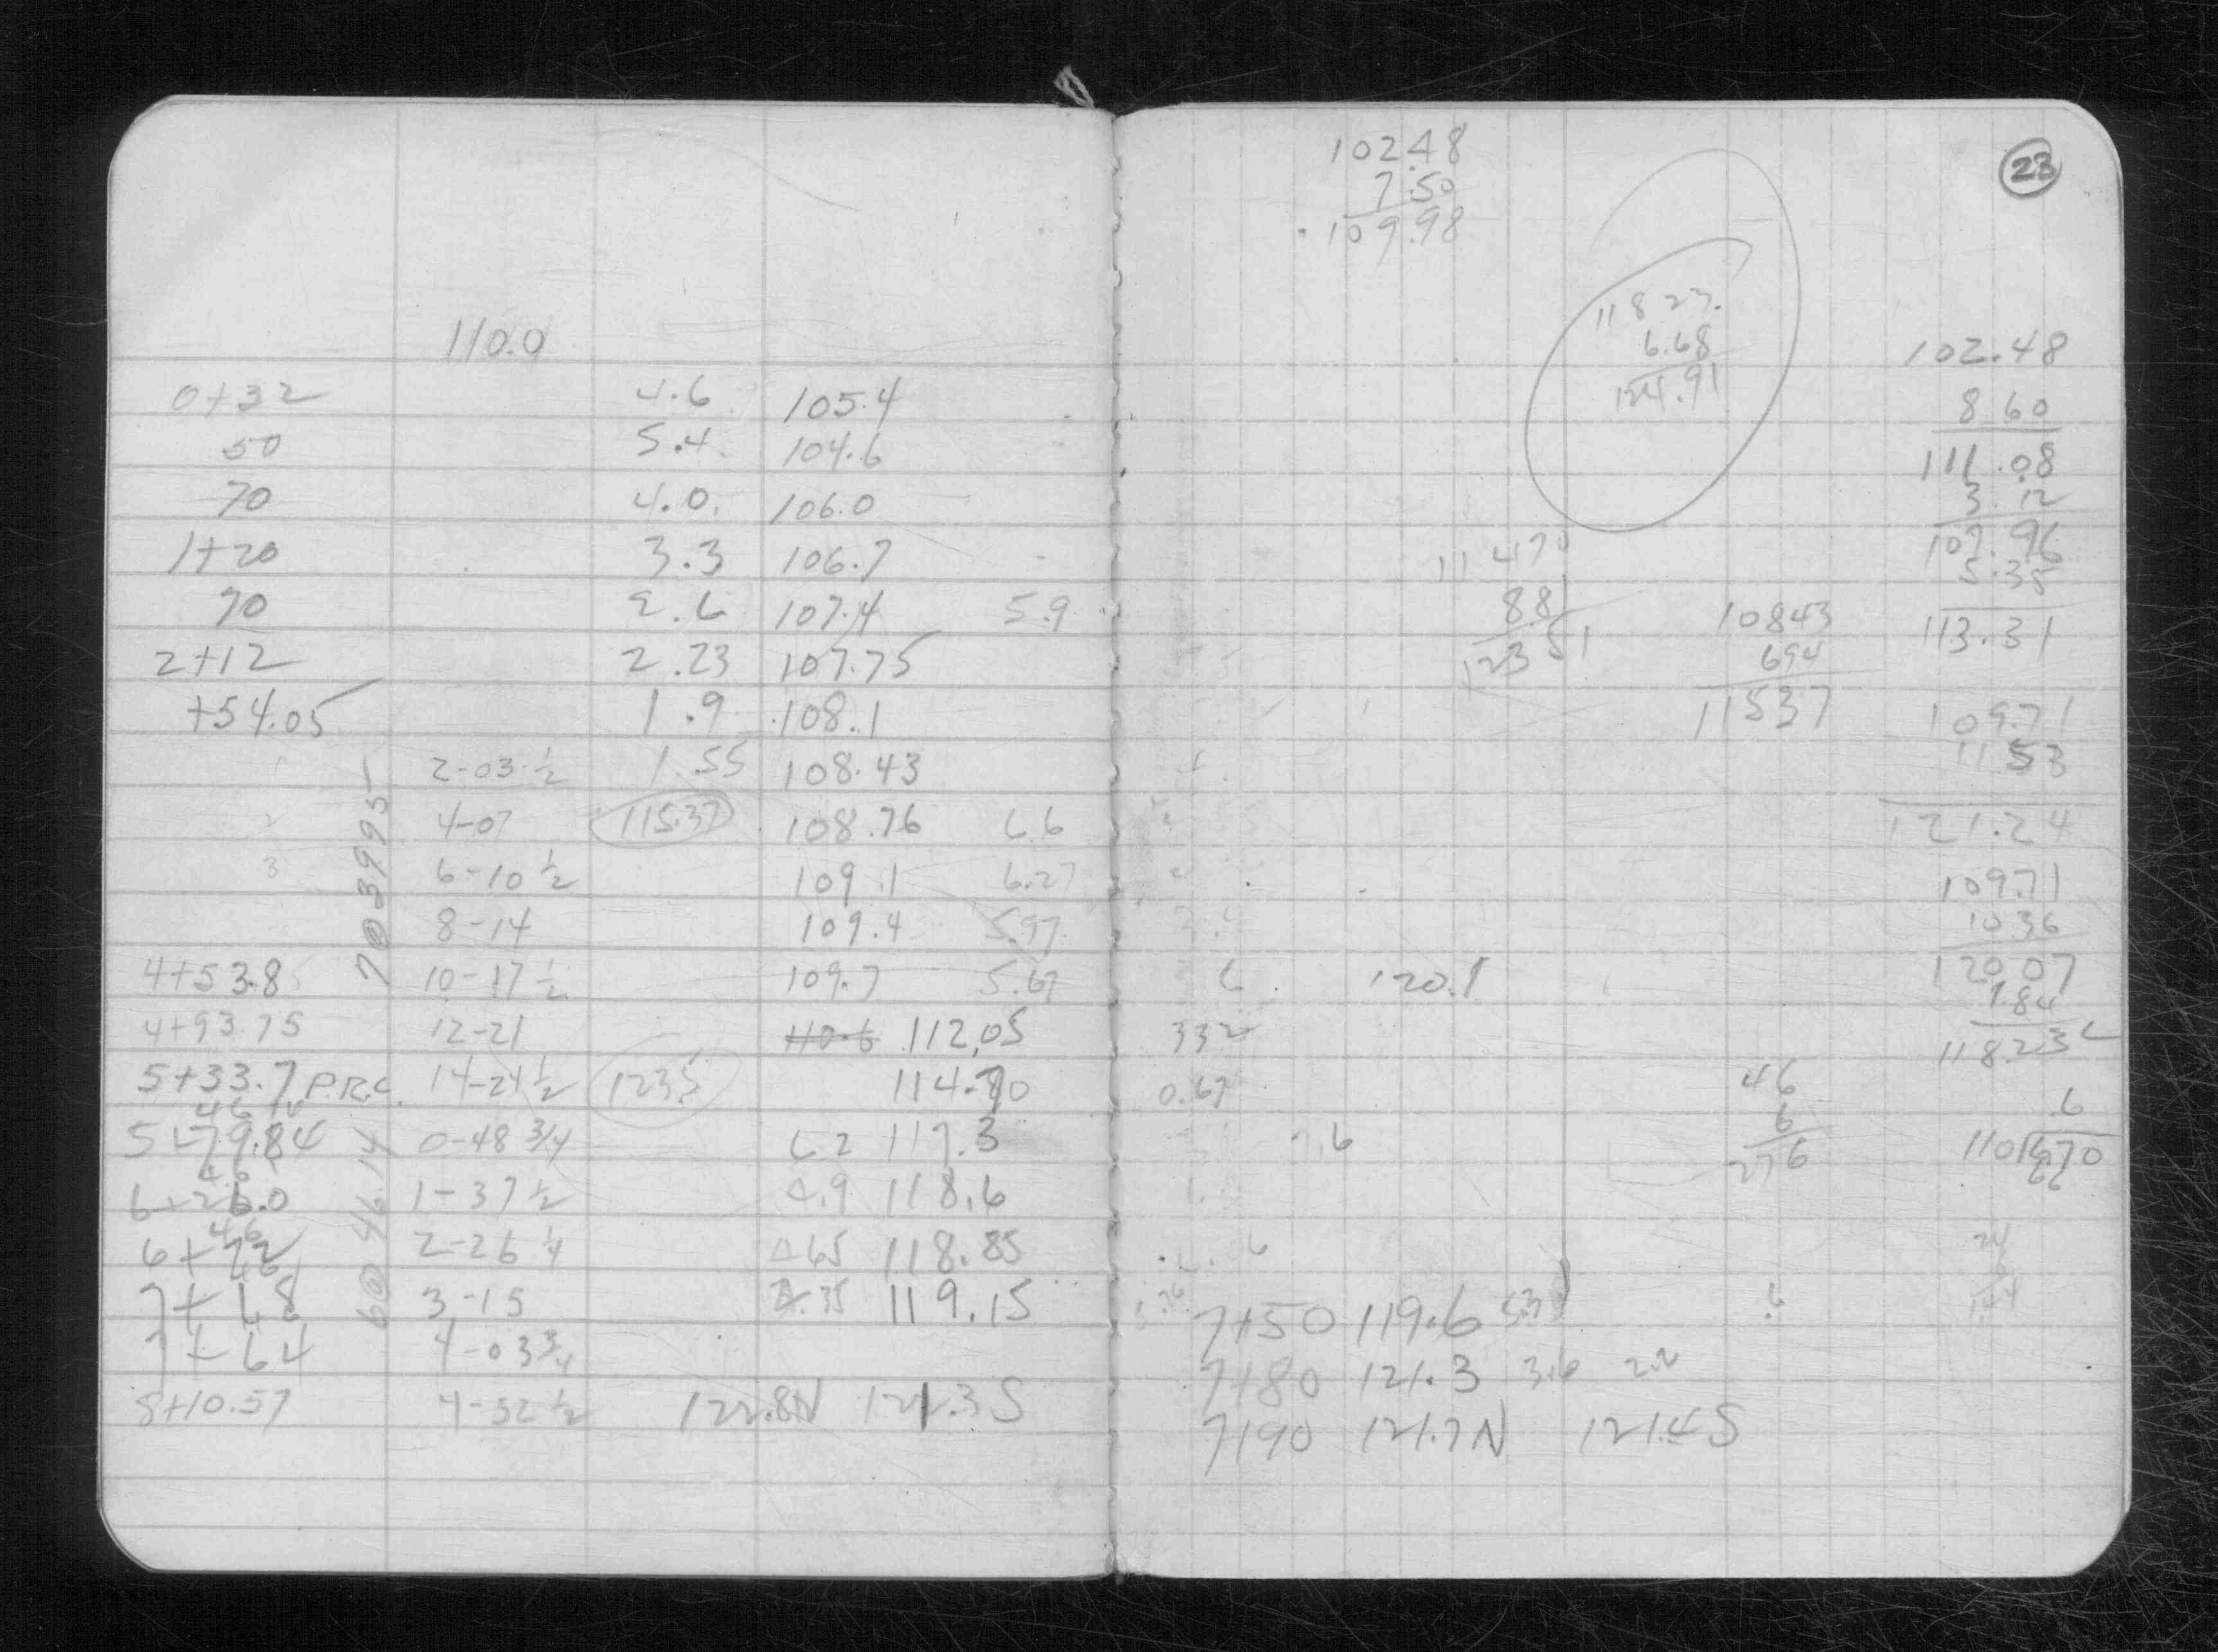 110.0
0+32 4.6 105.4
50 5.4 104.6
70 4.0 106.0
1+20 3.3 106.7
70 2.6 107.4 5.9
2+12 2.23 107.75
+54.05 1.9 108.1
2-03 1/2 1.55 108.43
4-07 115.37 108.76 6.6
3 6-10 1/2 109.1 6.27
8-14 109.4 5.97
7@39.95
4+53.85 10-17 1/2 109.7 5.67
4+93.75 12-21 110.6 112.05
5+33.7 P.R.C. 14-24 1/2 123.5 114.70
46.14
5+79.84 0-48 3/4 62 117.3
4.6
6+26.0 1-37 1/2 4.9 118.6
46
6+72 2-26 1/4 465 118.85
6@46.14
7+18 3-15 4.35 119.15
7+64 4-03 3/4
8+10.57 4-52 1/2 122.8N 121.3S
23
102.48
7.50
109.98
11823.
6.68
124.91
102.48
8 60
111.08
3.12
107.96
5.35
113.31
11470
881
12351
10843
694
11537
109.71
11 53
121.24
109.71
10 36
120.07
1.84
118.23
120.1
332
0.67
7.6
46
6
276
.6
110 670
66
24
6
144
.6
7+50 119.6 5.31
7+80 121.3 3.6 2.2
7+90 121.7N 121.4S